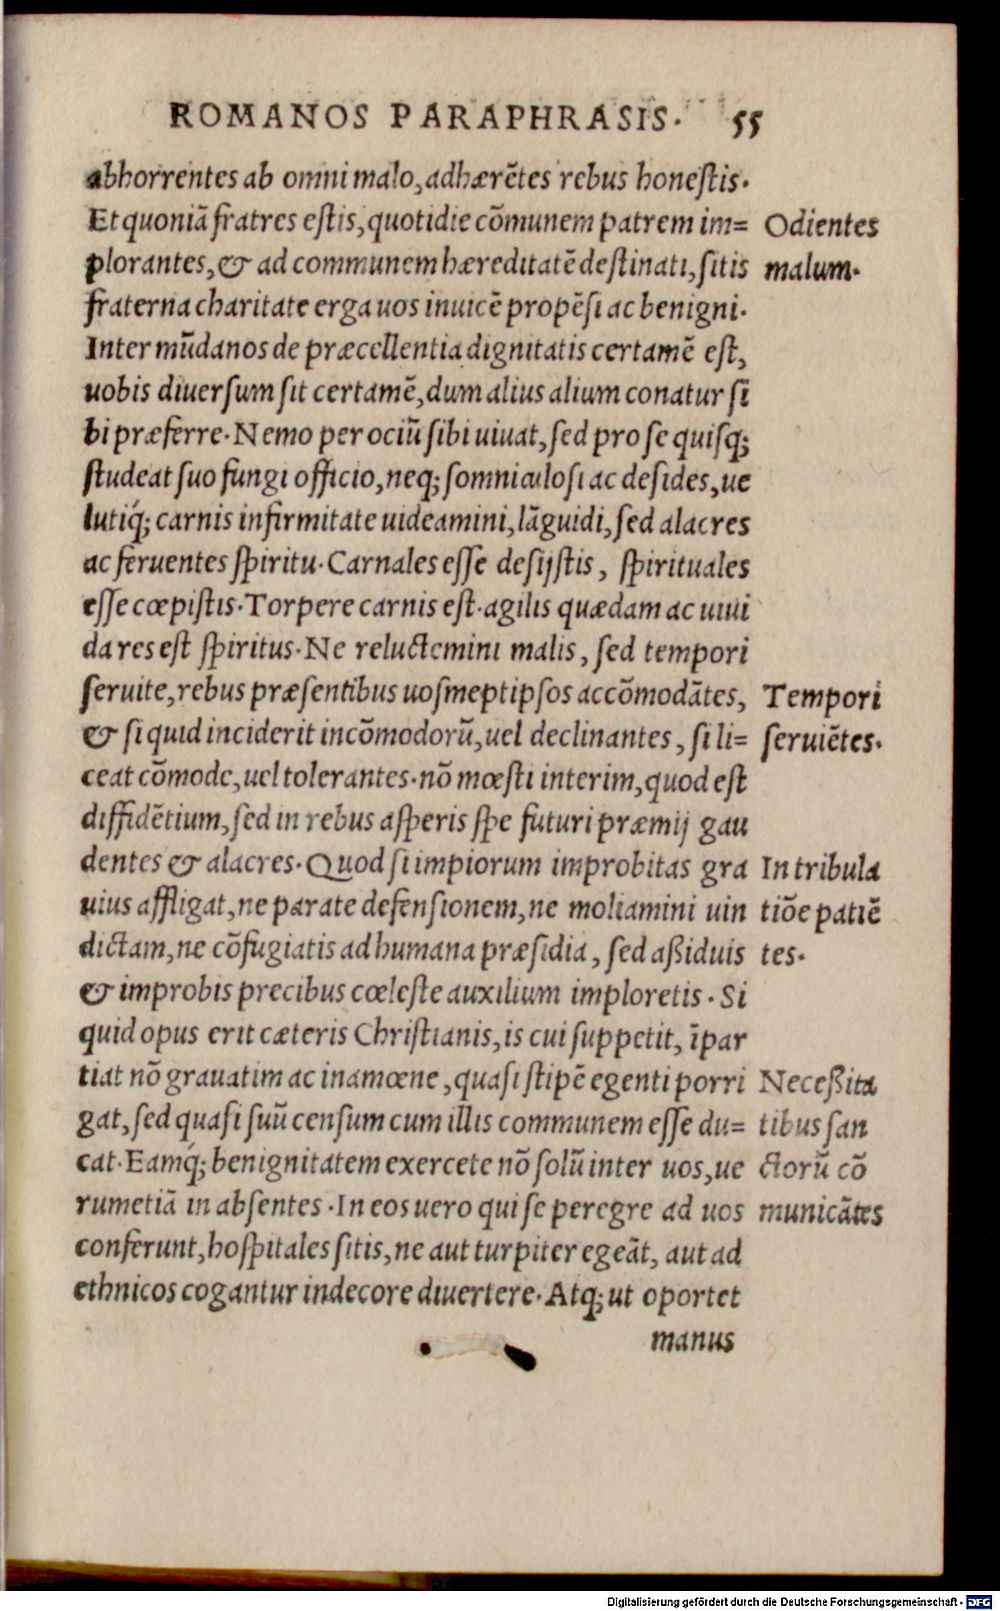 ROMANOS PARAPHRASIS. 55
abhorrentes ab omni malo, adhærẽtes rebus honeſtis.
Et quoniã fratres eſtis, quotidie cõmunem patrem im=
plorantes, & ad communem hæreditatẽ deſtinati, ſitis
fraterna charitate erga uos inuicẽ propẽſi ac benigni.
Inter mũdanos de præcellentia dignitatis certamẽ eſt,
uobis diuerſum ſit certamẽ, dum alius alium conatur ſi
bi præferre. Nemo per ociũ ſibi uiuat, ſed pro ſe quiſq;
ſtudeat ſuo fungi officio, neq; ſomniculoſi ac deſides, ue
lutiq́; carnis infirmitate uideamini, lãguidi, ſed alacres
ac feruentes ſpiritu. Carnales eſſe deſijſtis, ſpirituales
eſſe cœpiſtis. Torpere carnis eſt. agilis quædam ac uiui
da res eſt ſpiritus. Ne reluctemini malis, ſed tempori
ſeruite, rebus præſentibus uoſmeptipſos accõmodãtes,
& ſi quid inciderit incõmodorũ, uel declinantes, ſi li=
ceat cõmode, uel tolerantes. nõ mœſti interim, quod eſt
diffidẽtium, ſed in rebus aſperis ſpe futuri præmij gau
dentes & alacres. Quod ſi impiorum improbitas gra
uius affligat, ne parate defenſionem, ne moliamini uin
dictam, ne cõfugiatis ad humana præſidia, ſed aßiduis
& improbis precibus cœleſte auxilium imploretis. Si
quid opus erit cæteris Chriſtianis, is cui ſuppetit, ĩpar
tiat nõ grauatim ac inamœne, quaſi ſtipẽ egenti porri
gat, ſed quaſi ſuũ cenſum cum illis communem eſſe du=
cat. Eamq́; benignitatem exercete nõ ſolũ inter uos, ue
rumetiã in abſentes. In eos uero qui ſe peregre ad uos
conferunt, hoſpitales ſitis, ne aut turpiter egeãt, aut ad
ethnicos cogantur indecore diuertere. Atq; ut oportet
manus
Odientes
malum.
Tempori
ſeruiẽtes.
In tribula
tiõe patiẽ
tes.
Neceßita
tibus ſan
ctorũ cõ
municãtes
Digitalisierung gefördert durch die Deutsche Forschungsgemeinschaft - DFG